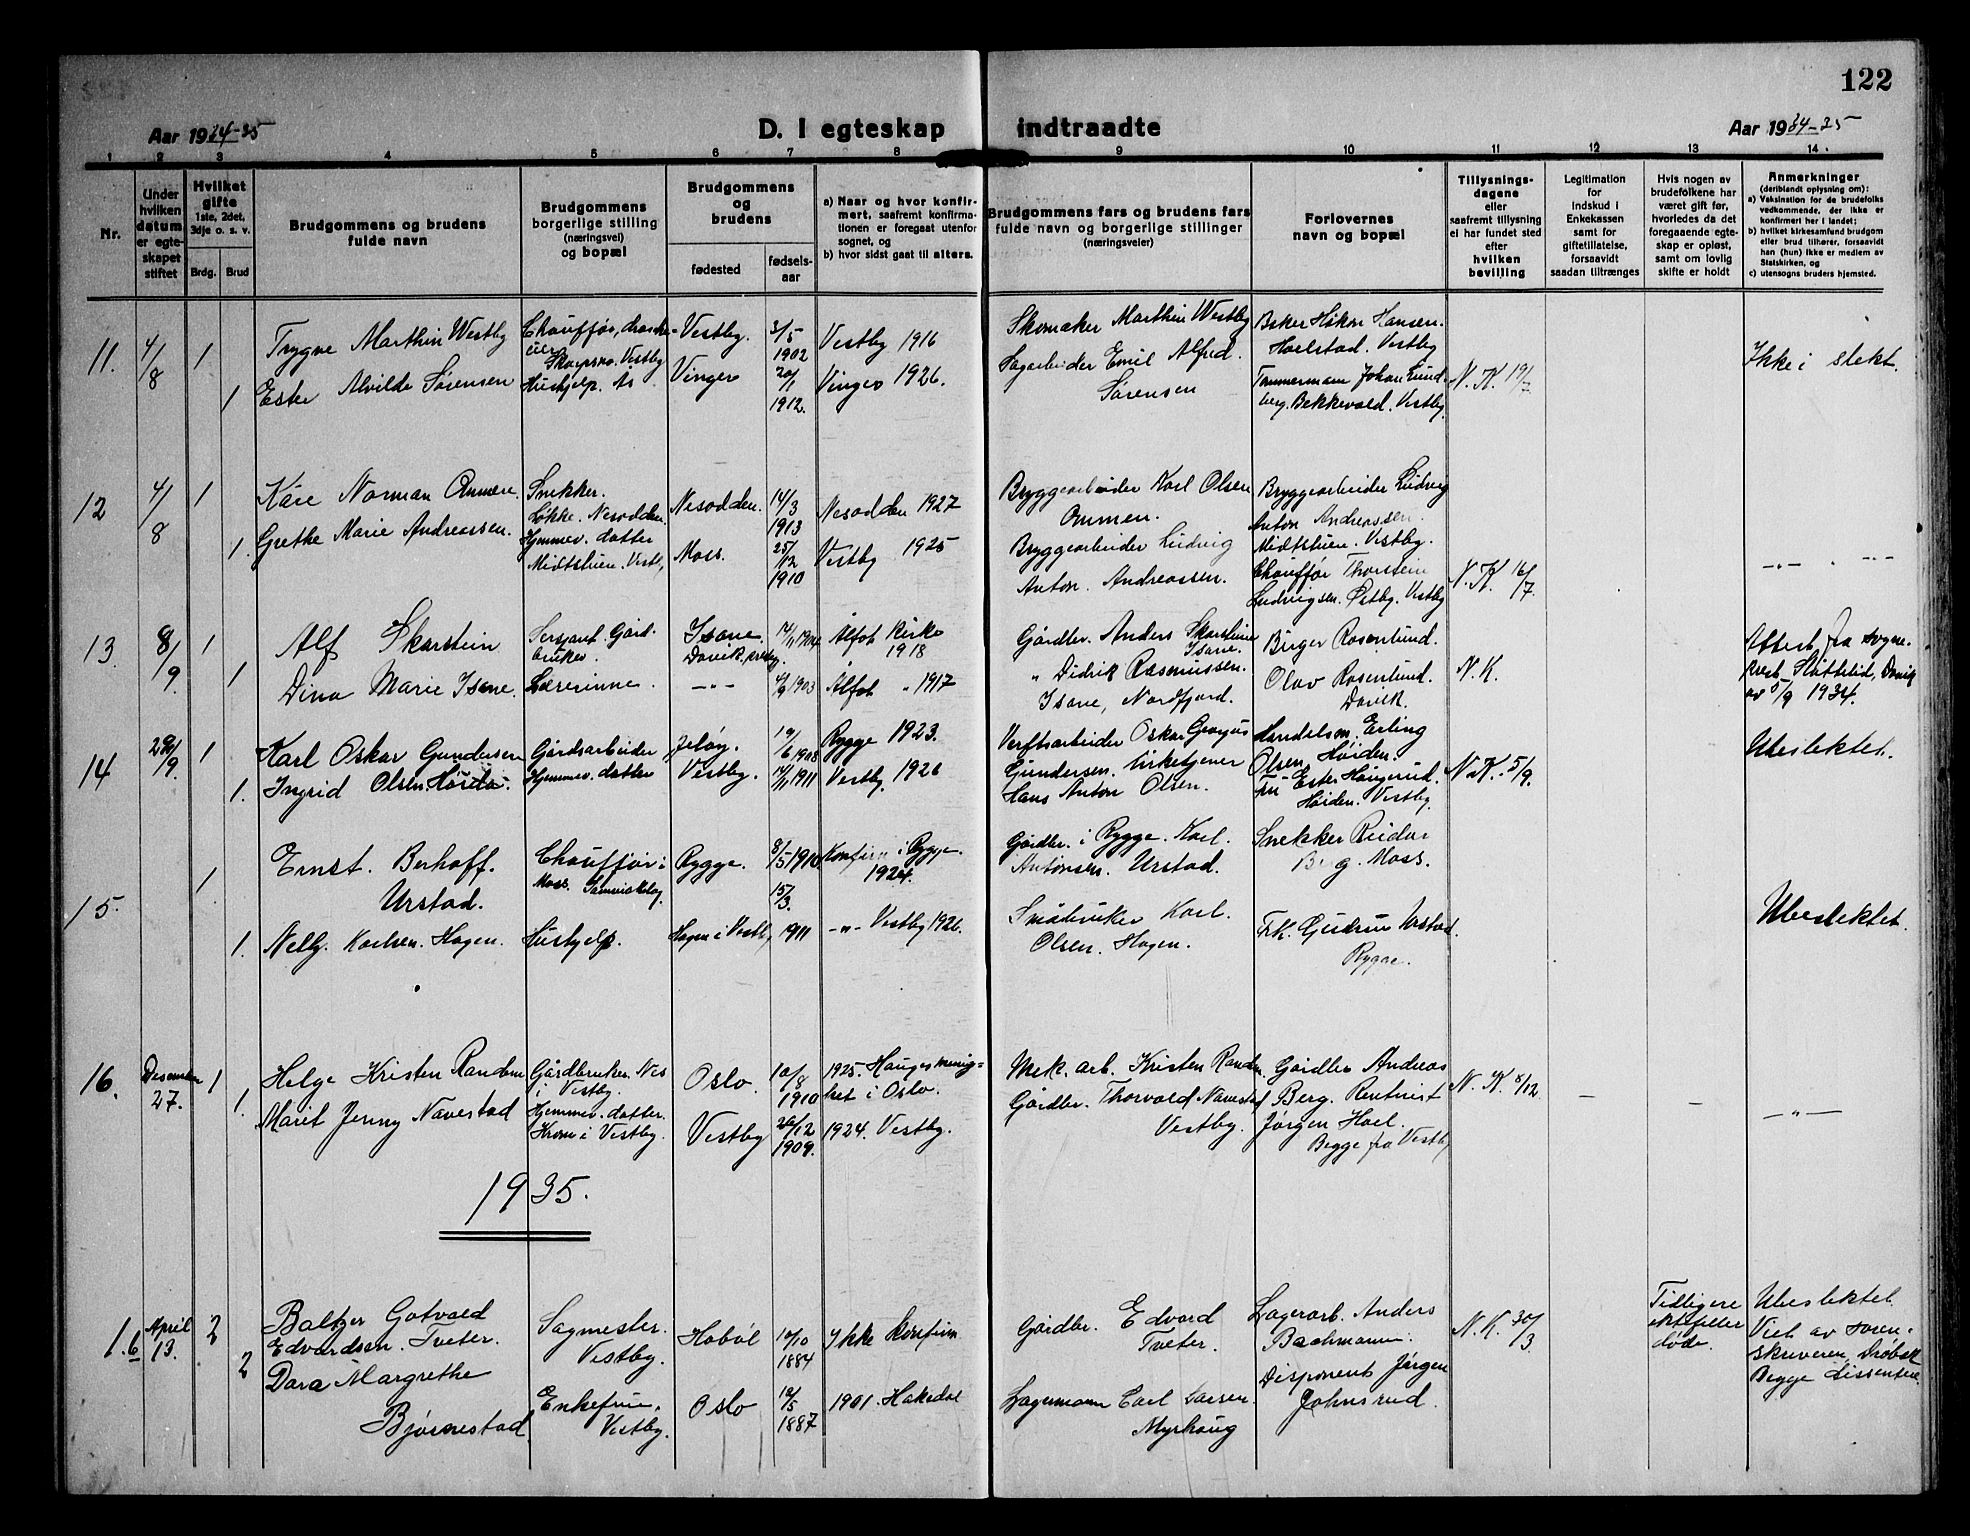 122
Aar 1934-35
D. I egteskap indtraadte
Aar 1934-35
1 2 3 4 5 6 7 8 9 10 11 12 13 14
Nr.
Under hvilken datum er egteskapet stiftet
Hvilket gifte 1ste, 2det, 3dje o. s. v.
Brdg. Brud
Brudgommens og brudens fulde navn
Brudgommens borgerlige stilling (næringsvei) og bopæl
Brudgommens og brudens
fødested
fødselsaar
a) Naar og hvor konfirmert, saafremt konfirmationen er foregaat utenfor sognet, og
b) hvor sidst gaat til alters.
Brudgommens fars og brudens fars fulde navn og borgerlige stillinger (næringsveier)
Forlovernes navn og bopæl
Tillysningsdagene eller saafremt tillysning ei har fundet sted efter hvilken bevilling
Legitimation for indskud i Enkekassen samt for giftetillatelse, forsaavidt saadan tiltrænges
Hvis nogen av brudefolkene har været gift før, hvorledes da det foregaaende egteskap er opløst, samt om lovlig skifte er holdt
Anmerkninger (deriblandt oplysning om):
a) Vaksination for de brudefolks vedkommende, der ikke er konfirmert her i landet;
b) hvilket kirkesamfund brudgom eller brud tilhører, forsaavidt han (hun) ikke er medlem av Statskirken, og
c) utensogns bruders hjemsted.
11. 4/8 1
Trygve Marthin Westby
Chauffør, droske-
eier Vestby
Vestby. 3/5 1902
Vestby 1916
Skomaker Marthin Westby
Baker Håkon Hansen.
Hoelstad. Vestby
1 Ester Alvilde Sørensen
Hushjelp. Ås
Vinger 20/1 1912.
Vinger 1926.
Sagarbeider Emil Alfred.
Sørensen
Tømmermann Johan Lund-
berg. Bekkevold. Vestby
N. K. 19/7
Ikke i slekt.
12 4/8 1
Kåre Norman Ommen.
Snekker.
Løkke. Nesodden.
Nesodden. 14/3 1913
Nesodden 1927
Bryggearbeider Karl Olsen
Ommen.
Bryggearbeider Ludvig
Anton Andreassen.
Midtstuen. Vestby.
1. Grethe Marie Andreassen.
Hjemmev. datter
Midtstuen. Vestby
Moss. 25/12 1910
Vestby 1925
Bryggearbeider Ludvig
Anton. Andreassen.
Chauffør Thorstein
Ludvigsen. Østby. Vestby
N. K. 16/7.
—„— „ —„—
13. 8/9. 1
Alf Skarstein
Sersjant. Gård-
bruker.
Isane.
Davik
14/11 1904
Ålfot kirke
1918
Gårdbr. Anders Skarstein
Isane.
Birger Rosenlund.
1 Dina Marie Isane.
Lærerinne.
—„—
4/9 1903
Ålfot „ 1917
„ Didrik Rasmussen.
Isane, Nordfjord.
Olav Rosenlund.
Davik.
N. K.
Attest fra sogne-
prest Davik
av 5/9 1934.
14 29/9. 1
Karl Oskar Gundersen
Gårdsarbeider
Jeløy. 19/6 1908
Rygge 1923.
Verftsarbeider Oskar
Gundersen. Kirketjener
Hans Anton Olsen.
Erling
Olsen, Høiden.
Fru Ester Haugerud.
Høiden. Vestby.
1. Ingrid Olsen
Hjemmev. datter
Vestby. 14/11 1911
Vestby. 1926
N. K. 5/9.
Ubeslektet.
15. 1
Ernst. Berhoff.
Urstad.
Chauffør i
Moss.
Rygge. 8/5 1910
Konfirm. i Rygge.
1924.
Gårdbr. i Rygge. Karl.
Antonsen. Urstad.
Snekker Reidar
Berg. Moss.
15/3.
1. Nelly. Karlsen. Hagen.
Hushjelp.
Hagen i Vestby 1911
—„— Vestby 1926.
Småbruker Karl.
Olsen. Hagen.
Frk. Gudrun Urstad.
Rygge.
Ubeslektet.
16. Desember 27. 1
Helge Kristen Randem
Gårdbruker. Nes
i Vestby.
Oslo. 10/8 1910
1925. Hauges menig-
het i Oslo.
Mek. arb. Kristen Randem
Gårdbr. Andreas
Berg. Rentnist
1. Marit Jenny Navestad
Hjemmev. datter.
Krom i Vestby.
Vestby 26/12 1909.
1924. Vestby.
Gårdbr. Thorvald Navestad
Vestby.
Jørgen Hoel.
Begge fra Vestby
N. K. 8/12.
— — —„—
1935.
1. 6 April 13. 2
Baltzer Gotvald
Edvardsen. Tveter.
Sagmester.
Vestby.
Hobøl 10/10 1884
Ikke konfirm
Gårdbr. Edvard
Tveter.
Lagerarb. Anders
Bachmann.
N. K. 30/3
Tidligere
ektefeller
døde.
Ubeslektet.
Viet av soren-
skriveren, Drøbak
Begge dissentere.
2 Dora Margrethe
Bjørnestad.
Enkefrue.
Vestby.
Oslo 12/5 1887
1901. Hakedal
Lagermann Carl Larsen.
Myrhaug
Disponent Jørgen
Johnsrud.